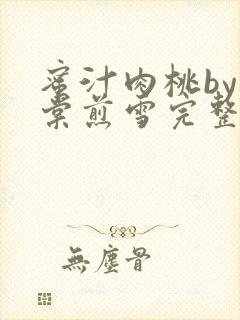 蜜汁肉桃by
棠煎雪完整
無塵骨